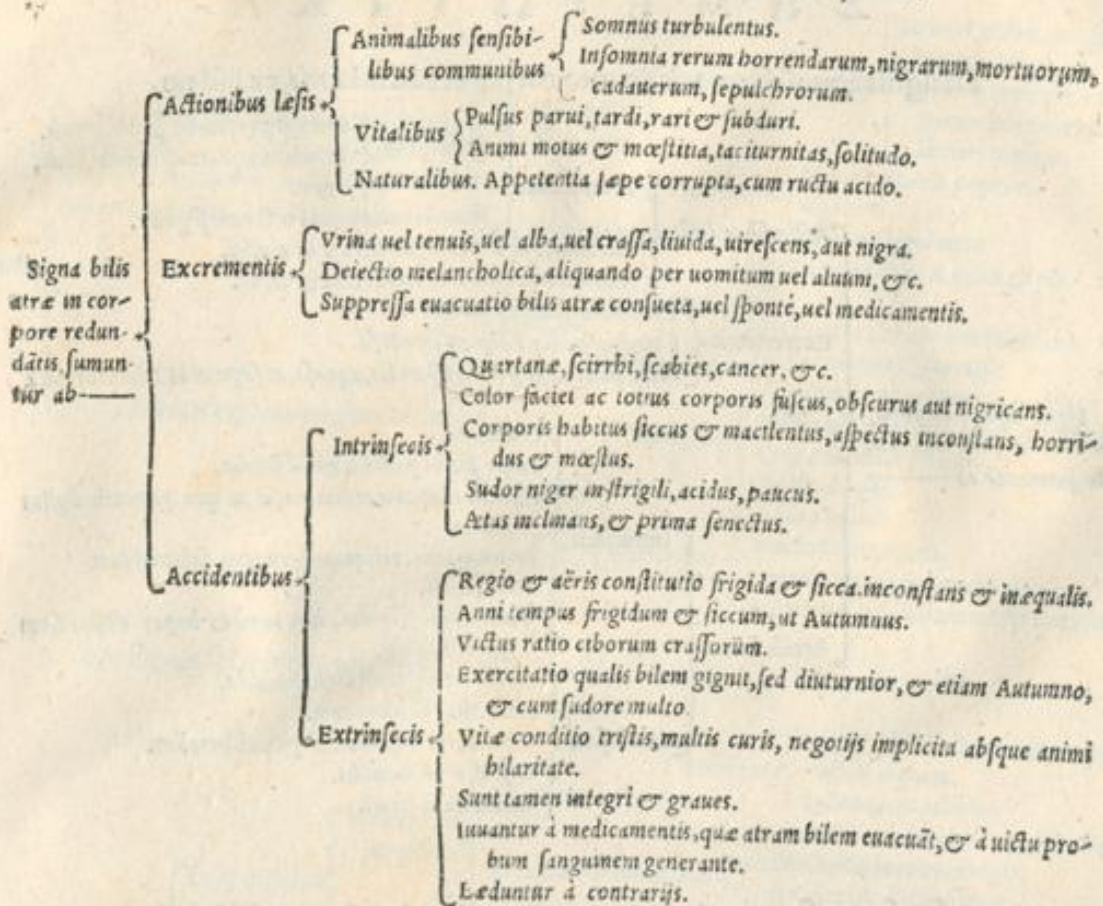 Signa bilis
atræ in cor-
pore redun-
dãtis, sumun-
tur ab
Actionibus læsis
Animalibus sensibi-
libus communibus
Somnus turbulentus.
Insomnia rerum horrendarum, nigrarum, mortuorum,
cadauerum, sepulchrorum.
Vitalibus
Pulsus parui, tardi, rari & subduri.
Animi motus & mœstitia, taciturnitas, solitudo.
Naturalibus. Appetentia sæpe corrupta, cum ructu acido.
Excrementis
Vrina uel tenuis, uel alba, uel crassa, liuida, uirescens, aut nigra.
Deiectio melancholica, aliquando per uomitum uel aluum, &c.
Suppressa euacuatio bilis atræ consueta, uel spontè, uel medicamentis.
Accidentibus
Intrinsecis
Quartanæ, scirrhi, scabies, cancer, &c.
Color faciei ac totius corporis fuscus, obscurus aut nigricans.
Corporis habitus siccus & macilentus, aspectus inconstans, horri-
dus & mœstus.
Sudor niger in strigili, acidus, paucus.
Ætas inclinans, & prima senectus.
Extrinsecis
Regio & aëris constitutio frigida & sicca. inconstans & inæqualis.
Anni tempus frigidum & siccum, ut Autumnus.
Victus ratio ciborum crassorum.
Exercitatio qualis bilem gignit, sed diuturnior, & etiam Autumno,
& cum sudore multo.
Vitæ conditio tristis, multis curis, negotijs implicita absque animi
hilaritate.
Sunt tamen integri & graues.
Iuuantur à medicamentis, quæ atram bilem euacuãt, & à uictu pro-
bum sanguinem generante.
Læduntur à contrarijs.